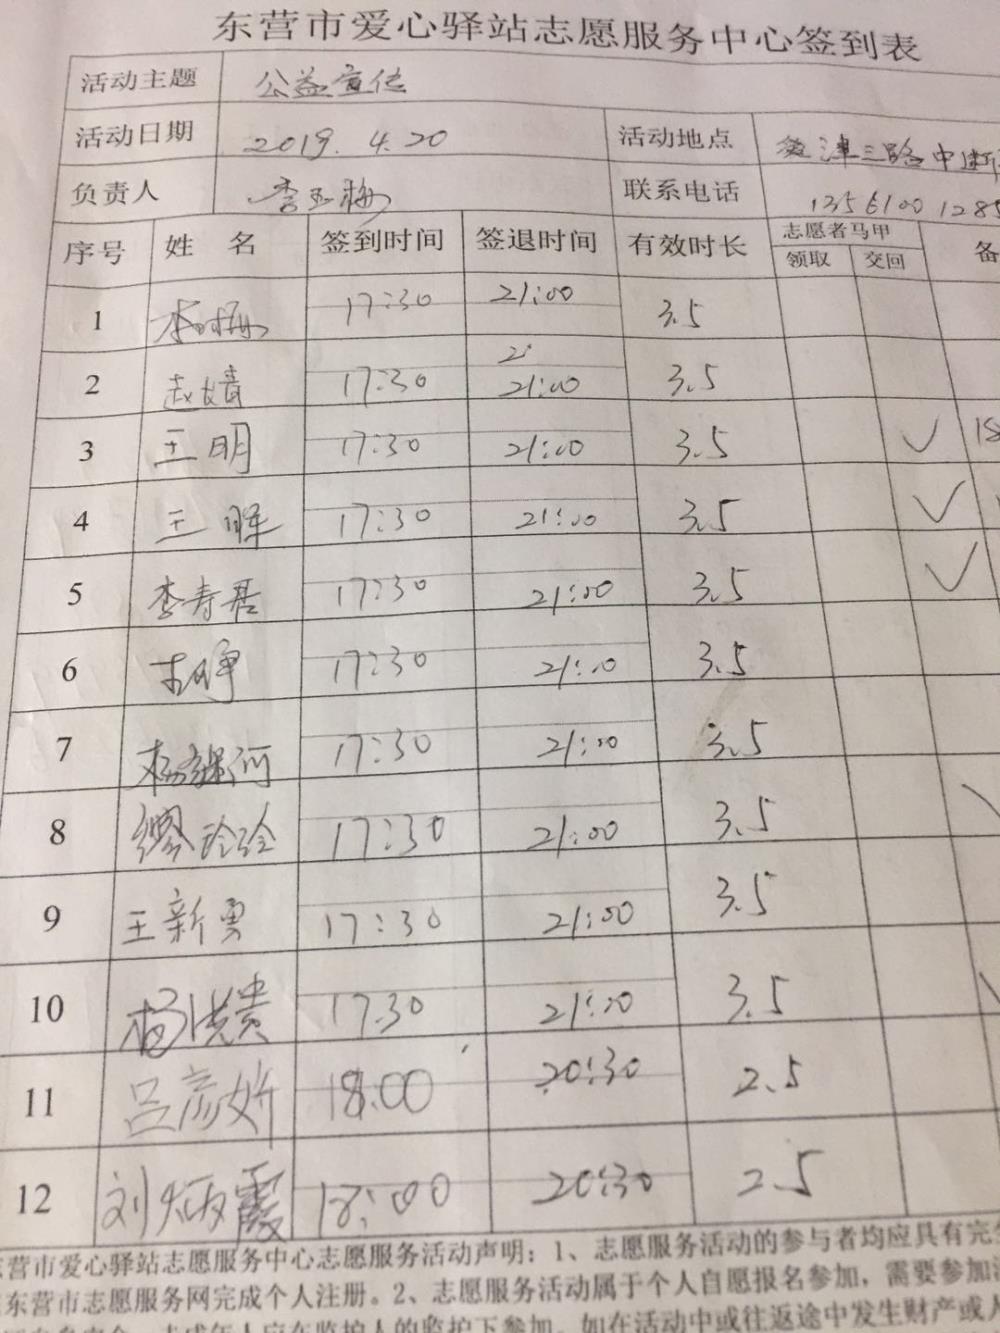 东营市爱心驿站志愿服务中心签到表
活动主题 公益宣传
活动日期 2019.4.20 活动地点 津三路中
负责人 李玉梅 联系电话 1356100128
序号 姓 名 签到时间 签退时间 有效时长 志愿者马甲 备
领取 交回
1 17:30 21:00 3.5
2 赵婧 17:30 21:00 3.5
3 王明 17:30 21:00 3.5 ✓
4 王晖 17:30 21:00 3.5 ✓
5 李寿君 17:30 21:00 3.5 ✓
6 17:30 21:00 3.5
7 杨继河 17:30 21:00 3.5
8 缪玲玲 17:30 21:00 3.5
9 王新勇 17:30 21:00 3.5
10 杨洪贵 17:30 21:00 3.5
11 吕彦妡 18:00 20:30 2.5
12 刘炳霞 18:00 20:30 2.5
东营市爱心驿站志愿服务中心志愿服务活动声明：1、志愿服务活动的参与者均应具有完
东营市志愿服务网完成个人注册。2、志愿服务活动属于个人自愿报名参加，需要参加
未成年人应在监护人的监护下参加。如在活动中或往返途中发生财产或人